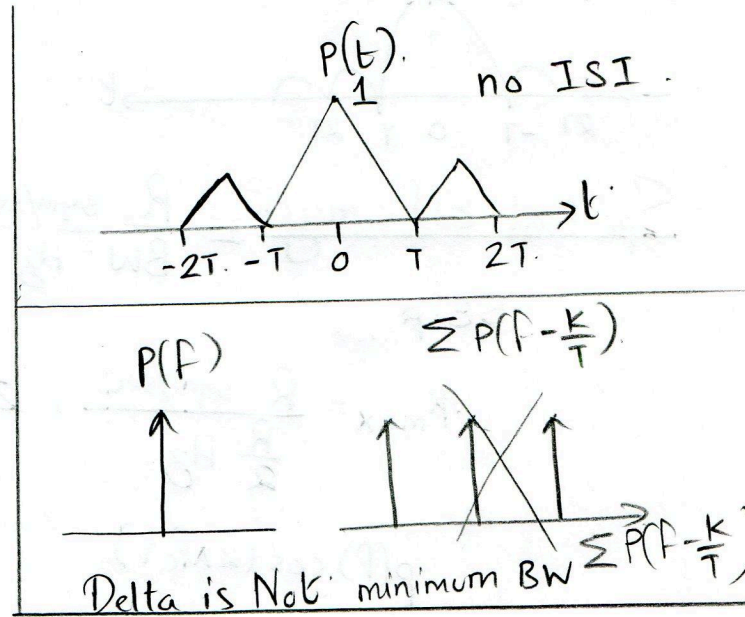 P(t).
1
no ISI.
t
-2T. -T 0 T 2T.
P(f)
Σ P(f - K/T)
Σ P(f - K/T)
Delta is Not minimum BW